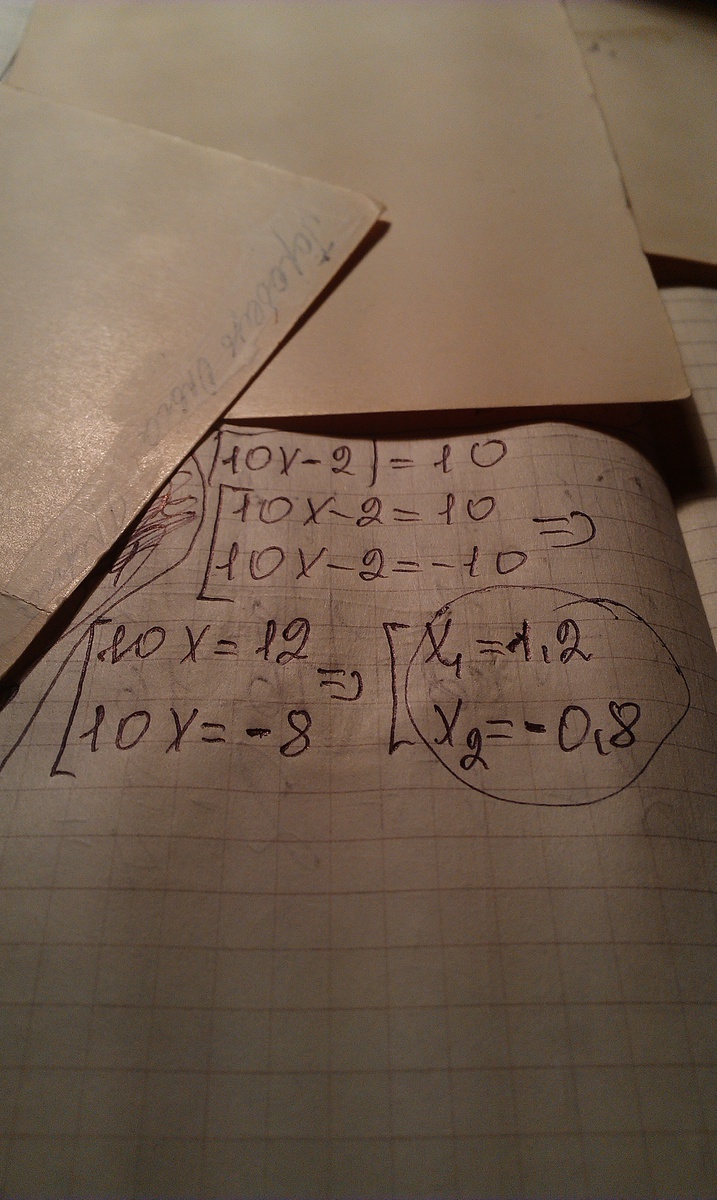 |10x-2|=10
[10x-2=10
10x-2=-10 =>
[10x=12
10x=-8 => [x₁=1,2
x₂=-0,8